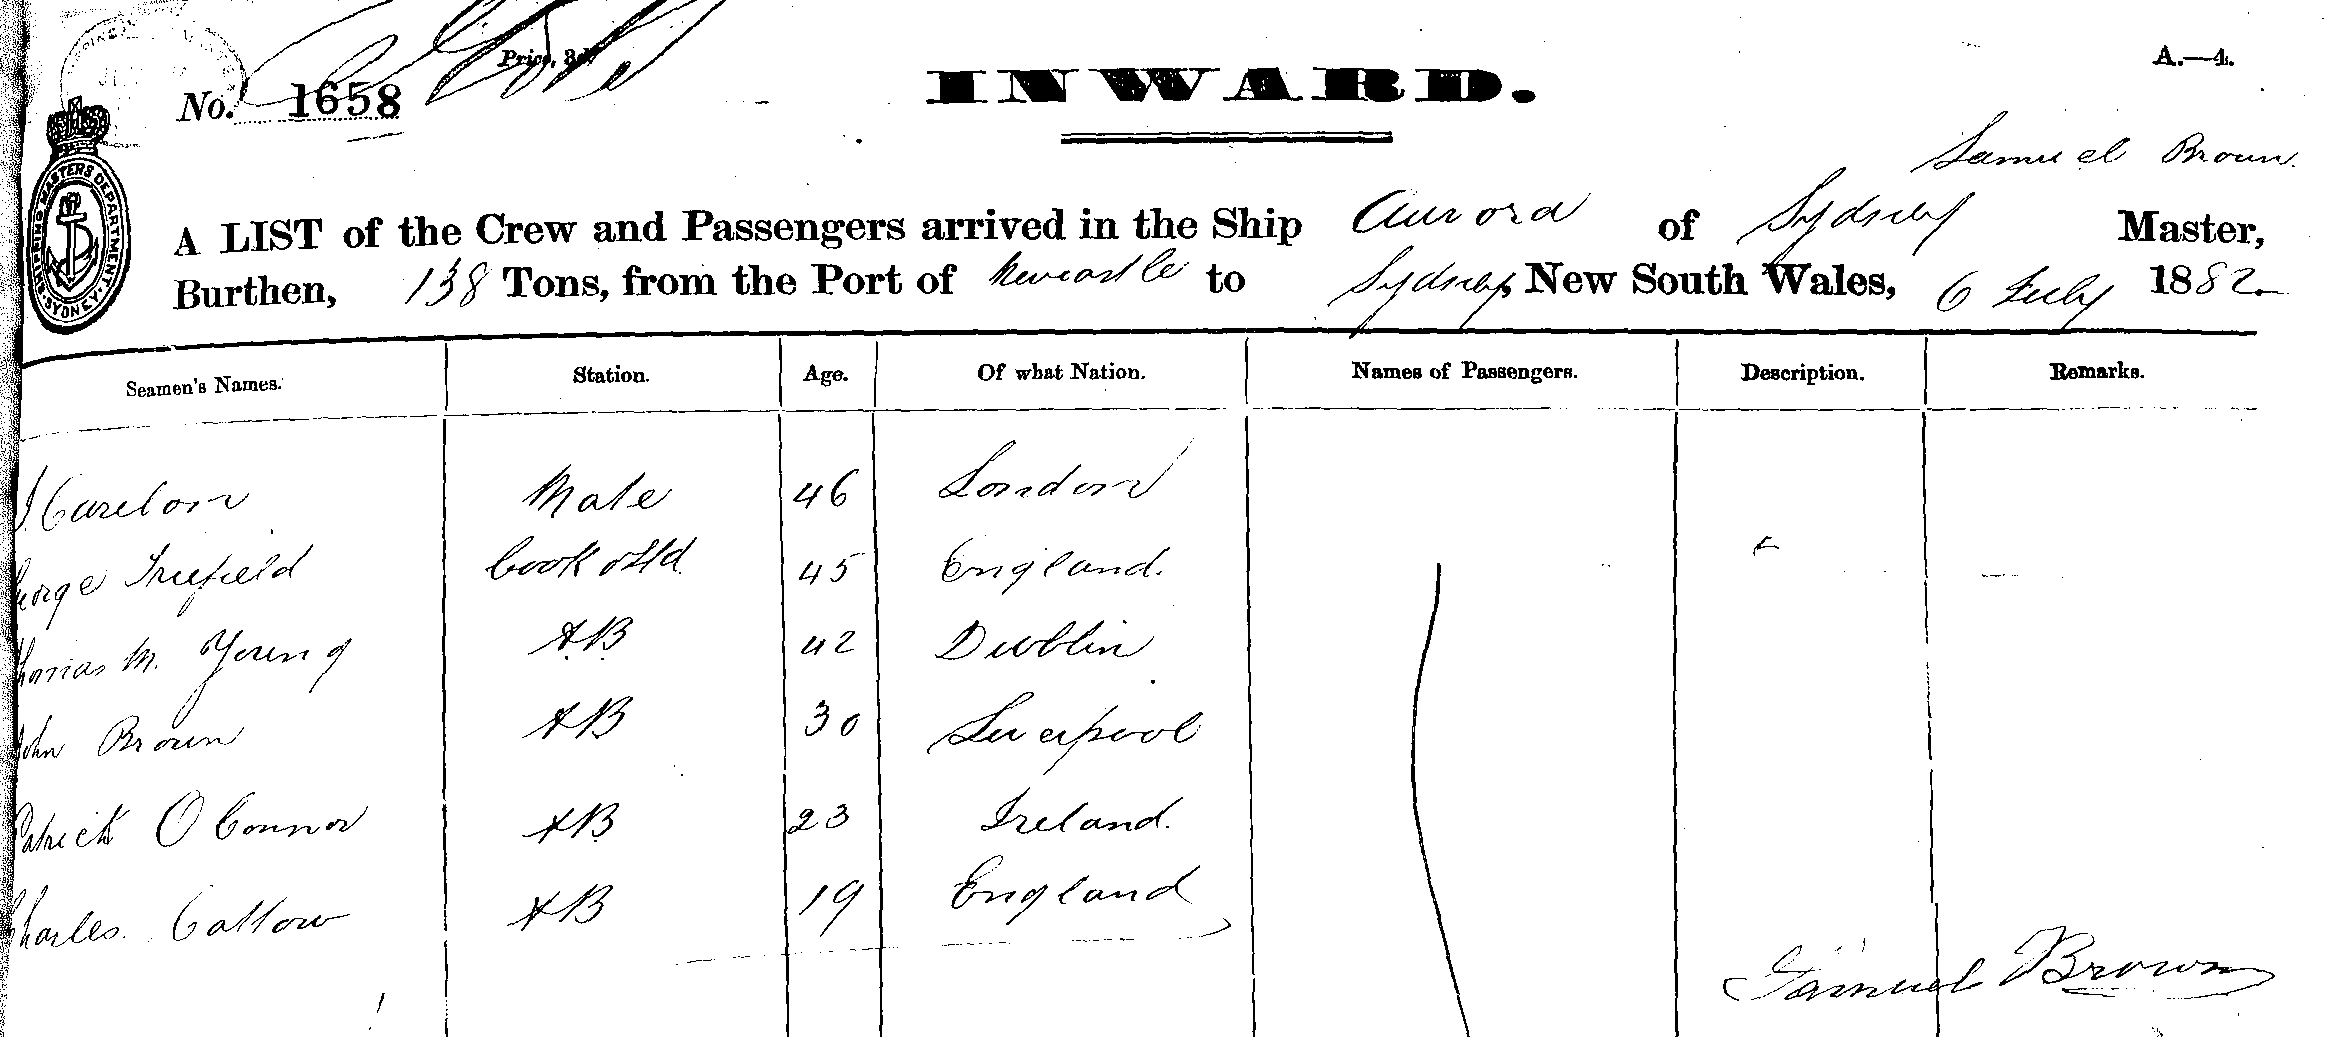 A.—4.
Price, 3d.
No. 1658
INWARD.
Samuel Brown.
A LIST of the Crew and Passengers arrived in the Ship Aurora of Sydney Master,
Burthen, 138 Tons, from the Port of Newcastle to Sydney, New South Wales, 6 July 1882
SHIPPING MASTERS DEPARTMENT. SYDNEY.
Seamen's Names. Station. Age. Of what Nation. Names of Passengers. Description. Remarks.
J Mate 46 London
George Cook & Std. 45 England.
Thomas M. Young A.B. 42 Dublin
John Brown AB 30 Liverpool
Patrick O Connor AB 23 Ireland.
Charles Callow AB 19 England
Samuel Brown